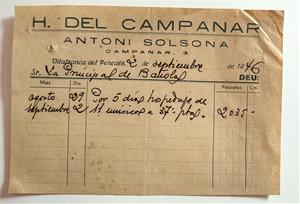 H. DEL CAMPANAR
ANTONI SOLSONA
CAMPANAR, 3
Vilafranca del Penedès, 2 de septiembre de 1946
Sr. La Principal de Bañolas DEU:
Mes Dia Pessetes Cts.
agosto 29 Por 5 días hospedaje de
septiembre 2 11 músicos a 37'- ptas. 2035-